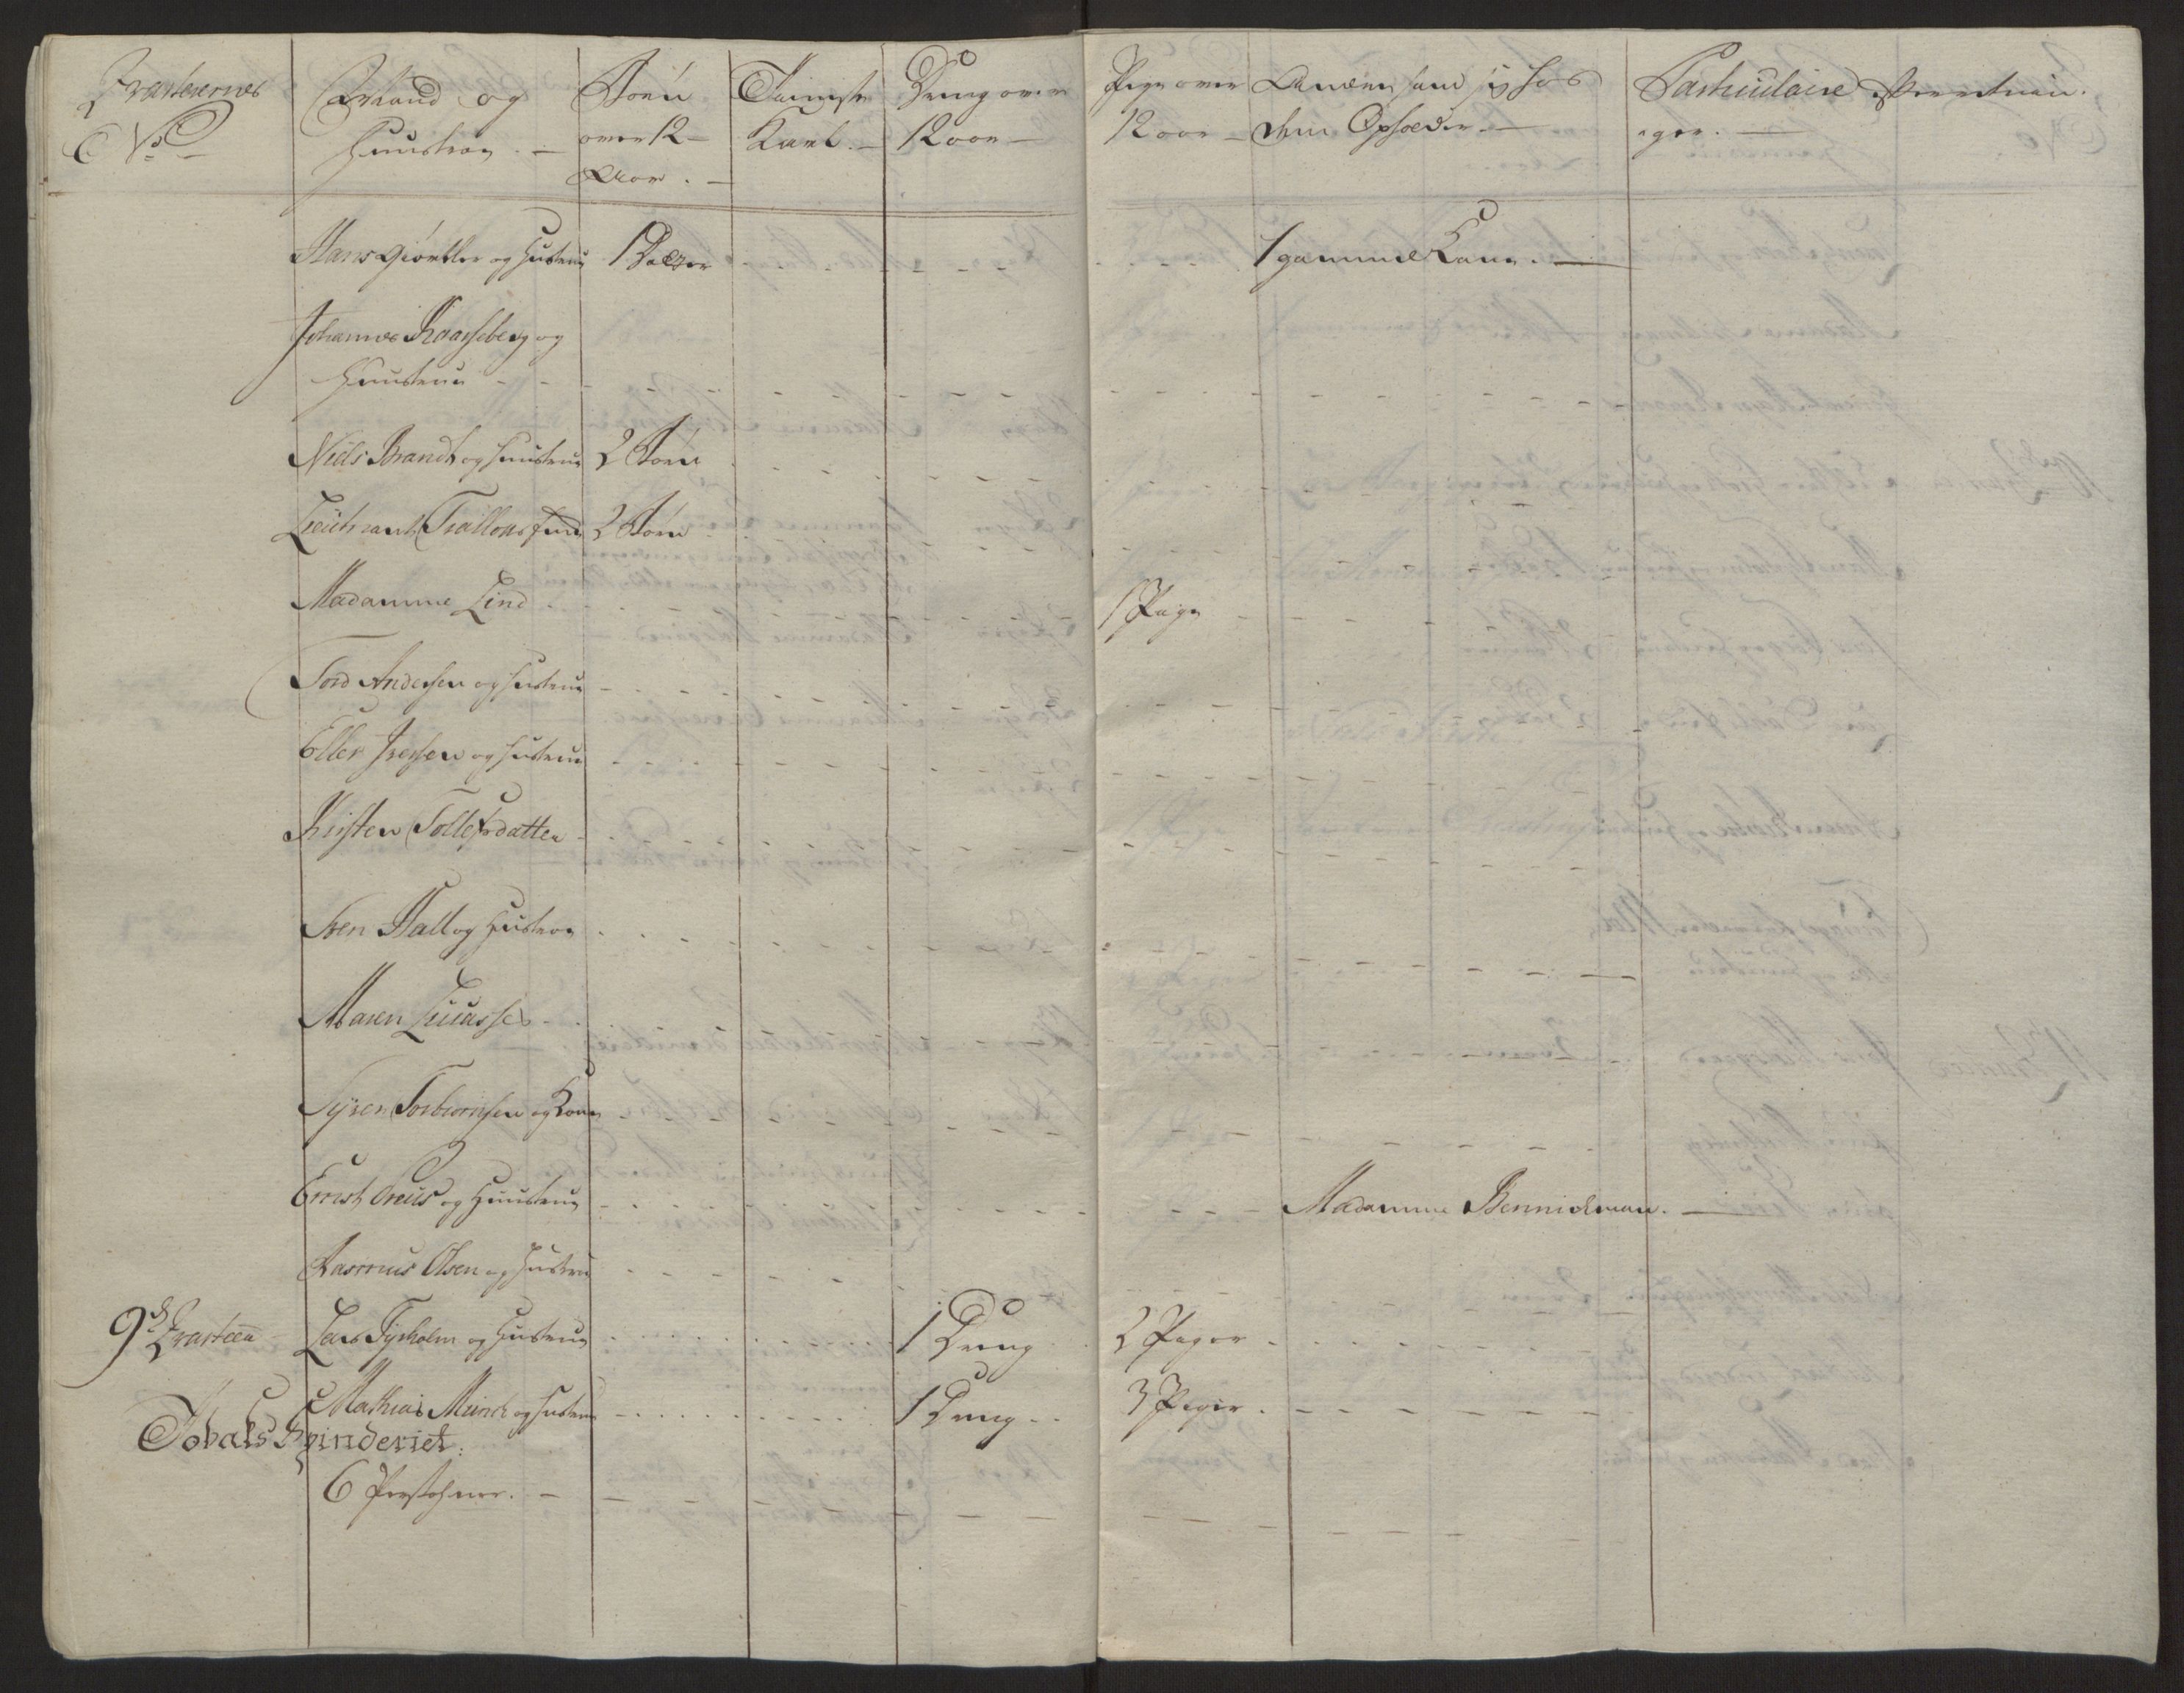 Qvarterernes No
Ægtemand og Huustroe.
Børn over 12 Aar.
Tienniste Karl.
Dreng over 12 aar
Pige over 12 aar
Anden som sig hos dem Opholder.
Particulaire Personer.
Hans Giørtler og Hustrue 1 Datter 1 gammel Kone.
Johannes Raasheberg og
Huustrue
Niels Brandt og Huustrue 2 Børn
Lieutnant Trallous 2 Børn
Madamme Lind 1 Pige
Tord Andersen og Hustrue
Eller Iversen og Hustrue
Kristen Tollefsdatter
Sven Hall og Hustroe
Maren Lucasses
Syver Torbiørnsen og Kone
Ernst Preus og Huustrue Madamme Bennichman.
Rasmus Olsen og Hustrue
9de Qvarteer Lars Tyrholm og Hustrue 1 Dreng 2 Piger
Mathias Münch og Hustrue 1 Dreng 3 Piger
Tobaks Spinderiet.
6 Persohner.